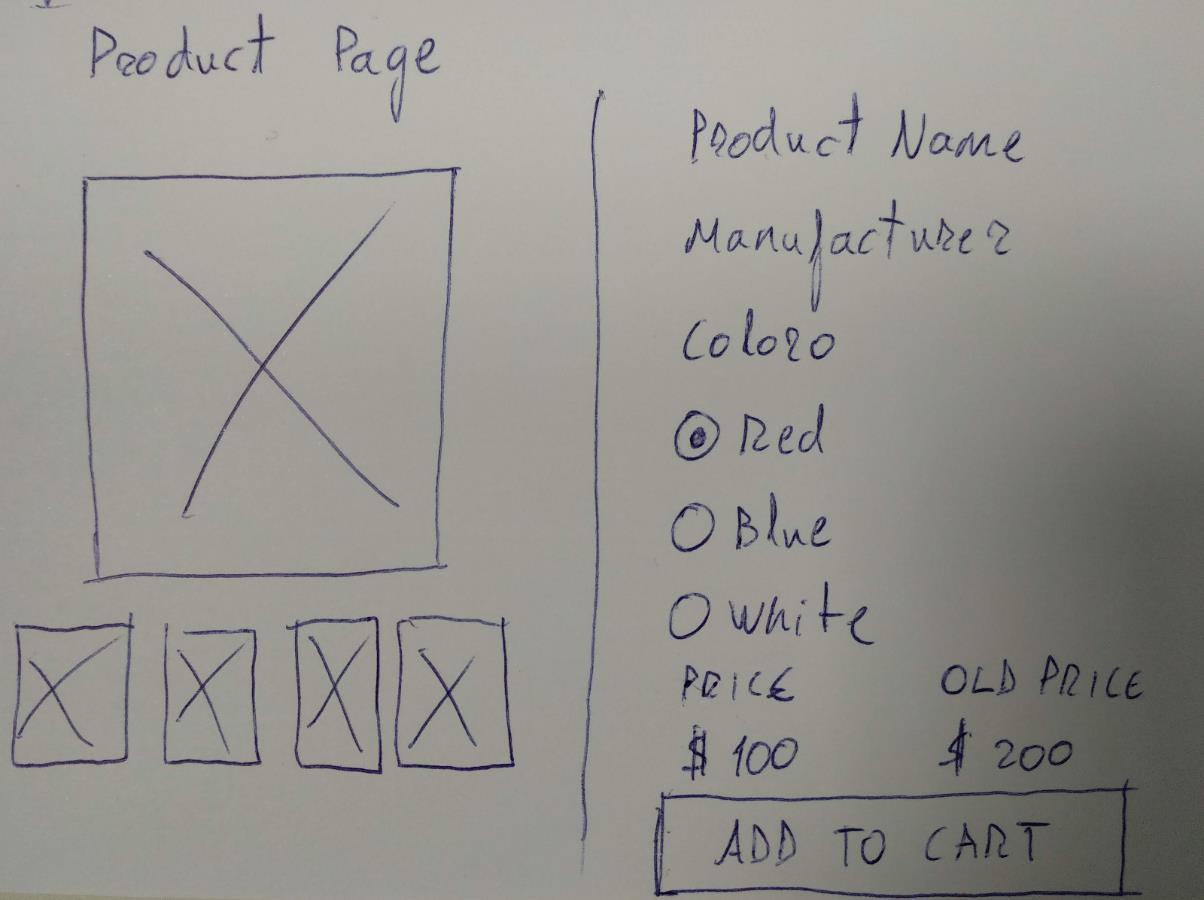 Product Page
Product Name
Manufacturer
Coloro
Red
Blue
White
PRICE OLD PRICE
$ 100 $ 200
ADD TO CART